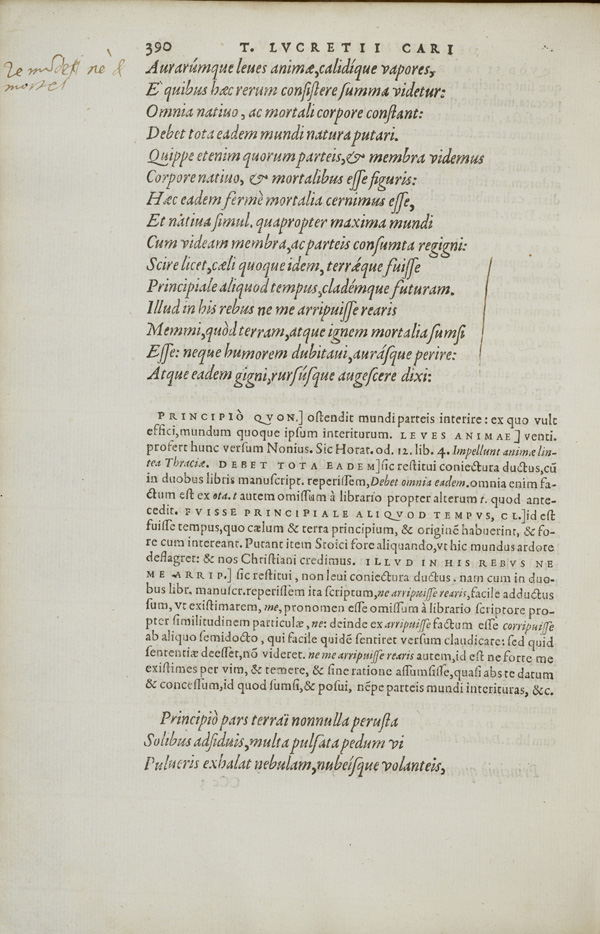 390 T. LVCRETII CARI
Aurarúmque leues animæ, calidíque vapores,
E' quibus hæc rerum consistere summa videtur:
Omnia natiuo, ac mortali corpore constant:
Debet tota eadem mundi natura putari.
Quippe etenim quorum parteis, & membra videmus
Corpore natiuo, & mortalibus esse figuris:
Hæc eadem fermè mortalia cernimus esse,
Et natiua simul. quapropter maxima mundi
Cum videam membra, ac parteis consumta regigni:
Scire licet, cæli quoque idem, terrǽque fuisse
Principiale aliquod tempus, cladémque futuram.
Illud in his rebus ne me arripuisse rearis
Memmi, quòd terram, atque ignem mortalia sumsi
Esse: neque humorem dubitaui, aurásque perire:
Atque eadem gigni, rursúsque augescere dixi:
PRINCIPIÒ QVON.] ostendit mundi parteis interire: ex quo vult
effici, mundum quoque ipsum interiturum. LEVES ANIMAE] venti.
profert hunc versum Nonius. Sic Horat. od. 12. lib. 4. Impellunt animæ lin-
tea Thraciæ. DEBET TOTA EADEM] sic restitui coniectura ductus, cũ
in duobus libris manuscript. reperissem, Debet omnia eadem. omnia enim fa-
ctum est ex ota. t autem omissum à librario propter alterum t. quod ante-
cedit. FVISSE PRINCIPIALE ALIQVOD TEMPVS, CL.] id est
fuisse tempus, quo cælum & terra principium, & originẽ habuerint, & fo-
re cum intereant. Putant item Stoici fore aliquando, vt hic mundus ardore
deflagret: & nos Christiani credimus. ILLVD IN HIS REBVS NE
ME ARRIP.] sic restitui, non leui coniectura ductus. nam cum in duo-
bus libr. manuscr. reperissem ita scriptum, ne arripuisse rearis, facile adductus
sum, vt existimarem, me, pronomen esse omissum à librario scriptore pro-
pter similitudinem particulæ, ne: deinde ex arripuisse factum esse corripuisse
ab aliquo semidocto, qui facile quidẽ sentiret versum claudicare: sed quid
sententiæ deesset, nõ videret. ne me arripuisse rearis autem, id est ne forte me
existimes per vim, & temere, & sine ratione assumsisse, quasi abs te datum
& concessum, id quod sumsi, & posui, nẽpe parteis mundi interituras, &c.
Principiò pars terraï nonnulla perusta
Solibus adsiduis, multa pulsata pedum vi
Pulueris exhalat nebulam, nubeísque volanteis,